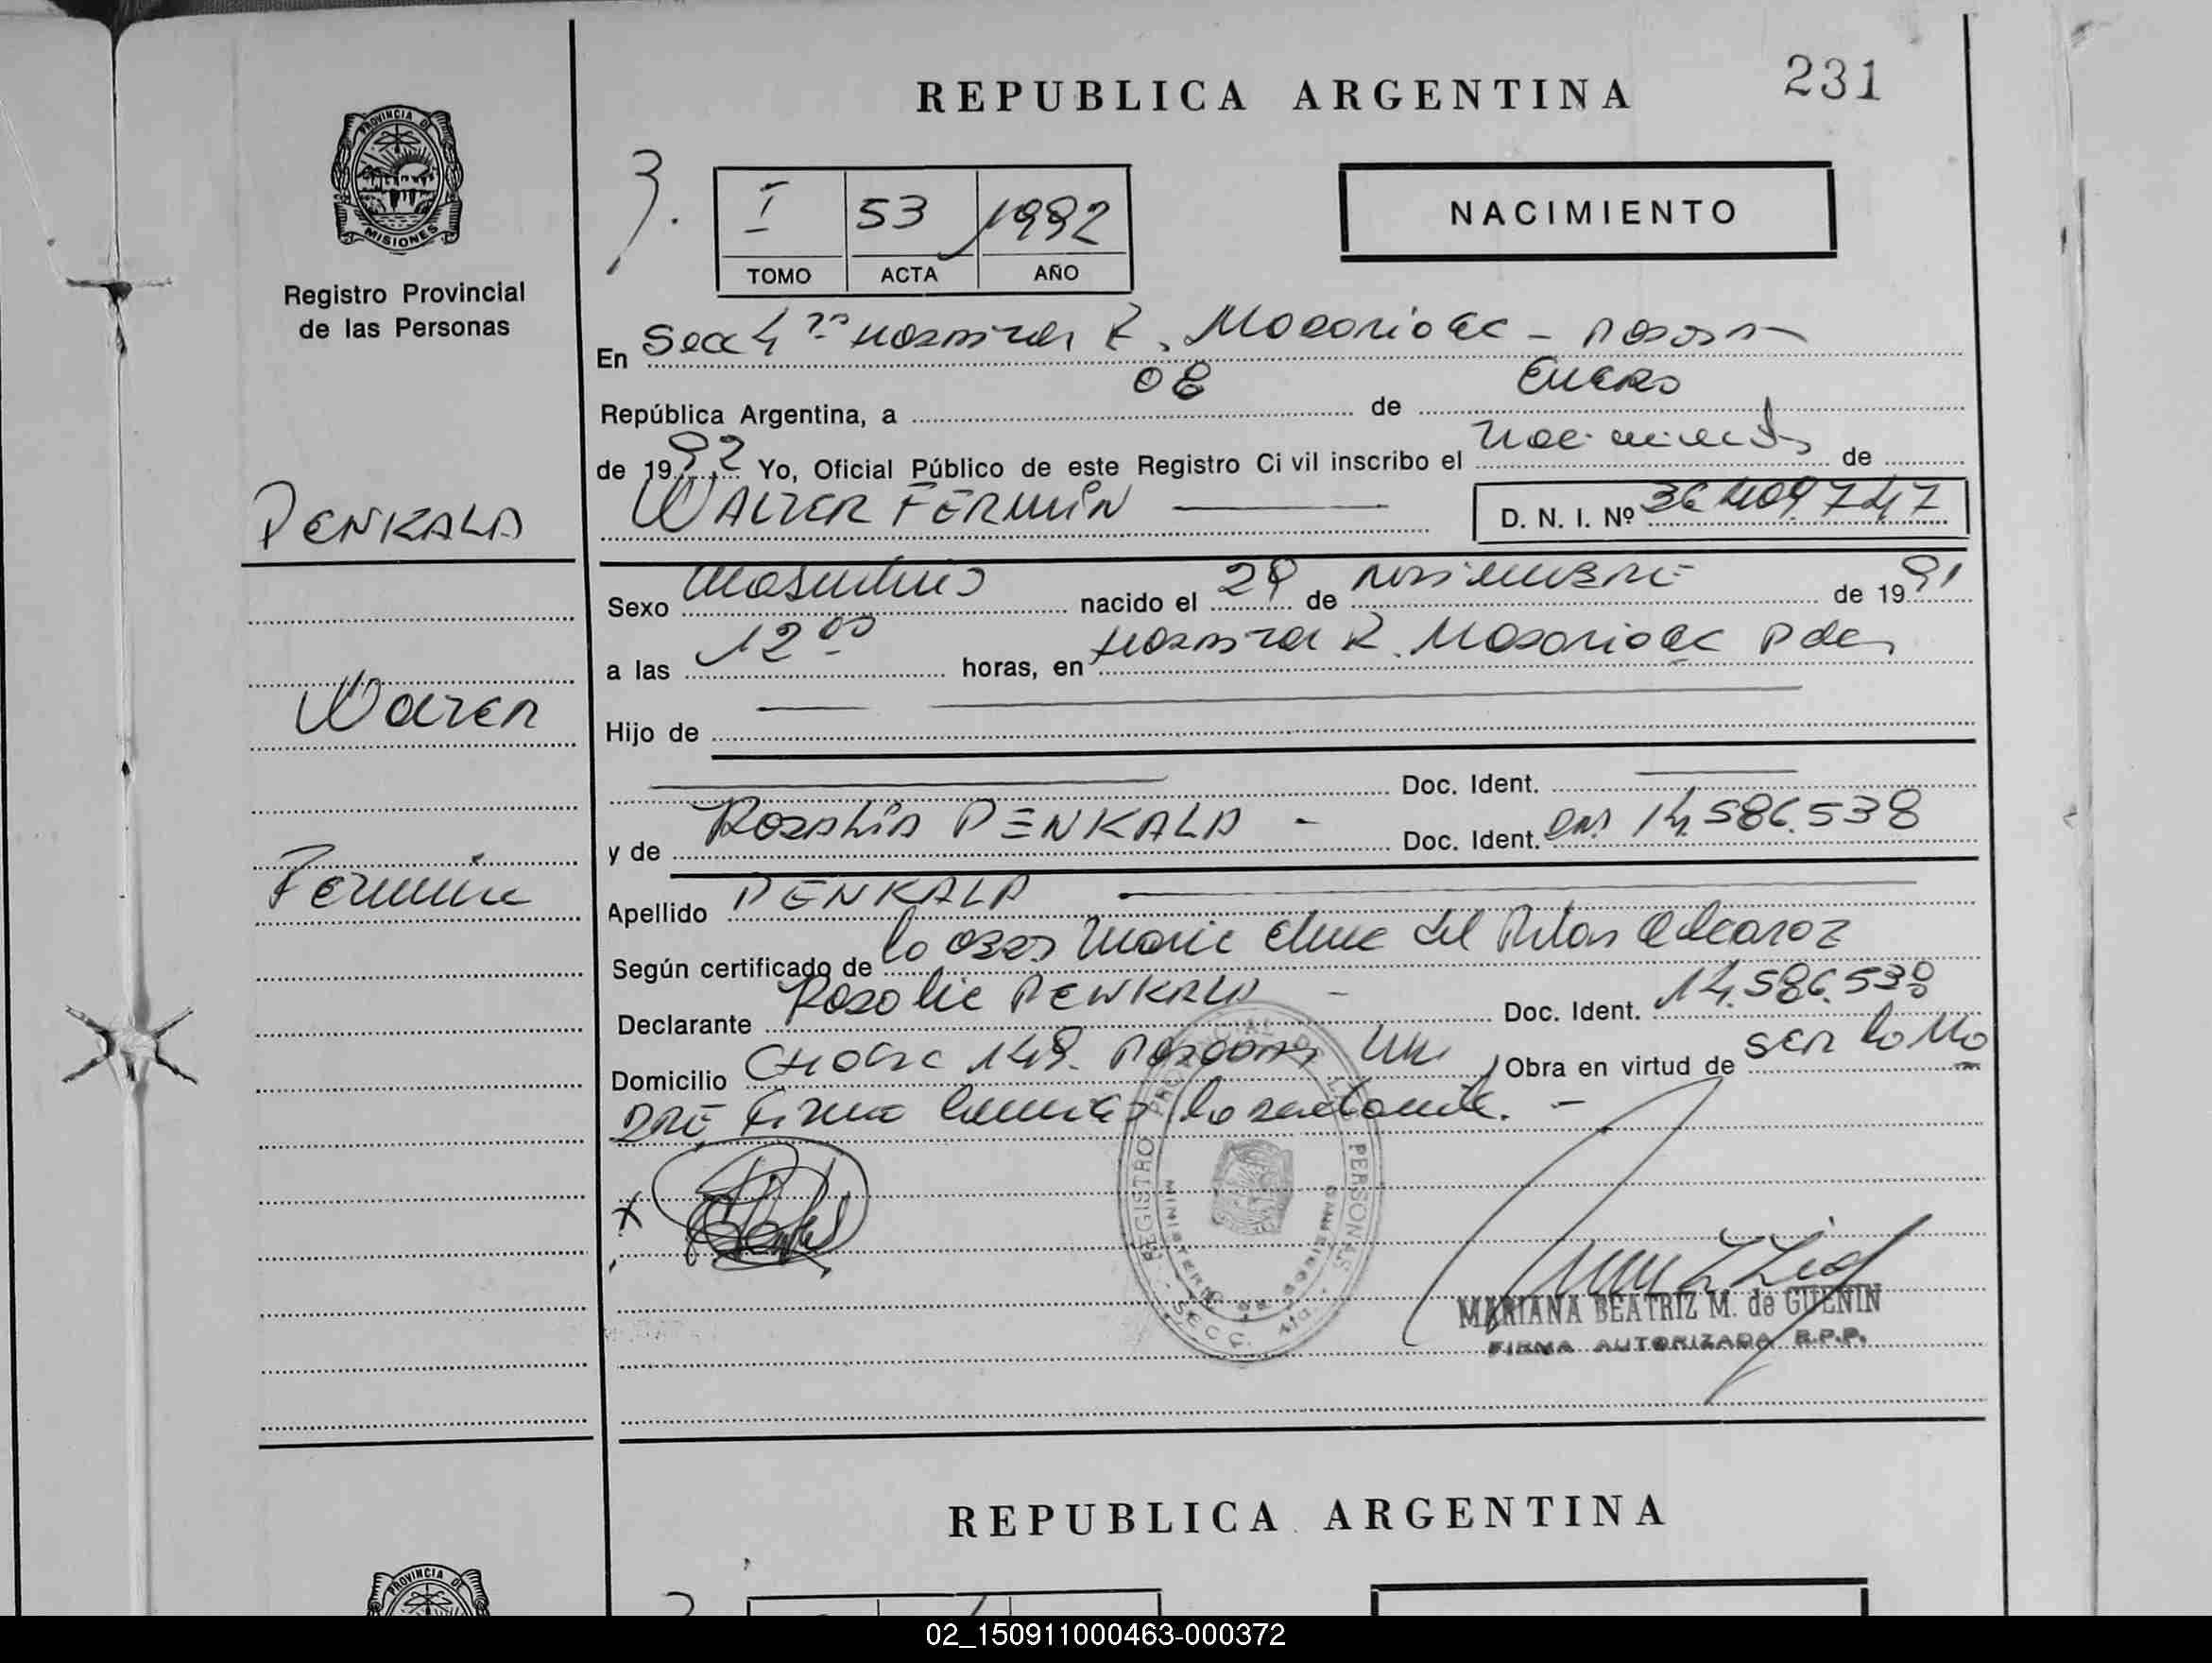 REPUBLICA ARGENTINA
231
PROVINCIA DE
MISIONES
Registro Provincial
de las Personas
3.
I 53 1992
TOMO ACTA AÑO
NACIMIENTO
En Secc 4ta Hospital R. Madariaga -
República Argentina, a 08 de Enero
de 1992 Yo, Oficial Público de este Registro Civil inscribo el nacimiento de
PENKALA
WALTER FERMIN
D. N. I. Nº 36.409.747
Sexo Masculino nacido el 29 de noviembre de 1991
a las 12 00 horas, en Hospital R. Madariaga Pdas
Walter
Hijo de
Doc. Ident.
y de Rosalia PENKALA - Doc. Ident. DNI 14.586.538
Fermin
Apellido PENKALA
Según certificado de la obst Maria Elena del Pilar Alcaraz
Declarante Rosalia PENKALA - Doc. Ident. 14.586.538
Domicilio 148. Posadas Obra en virtud de ser la Ma
dre, Firma la declarante. -
REGISTRO PROVINCIAL DE LAS PERSONAS
MINISTERIO DE GOBIERNO
SECC.
MARIANA BEATRIZ M. de GUENIN
FIRMA AUTORIZADA R.P.P.
REPUBLICA ARGENTINA
PROVINCIA DE
02_150911000463-000372